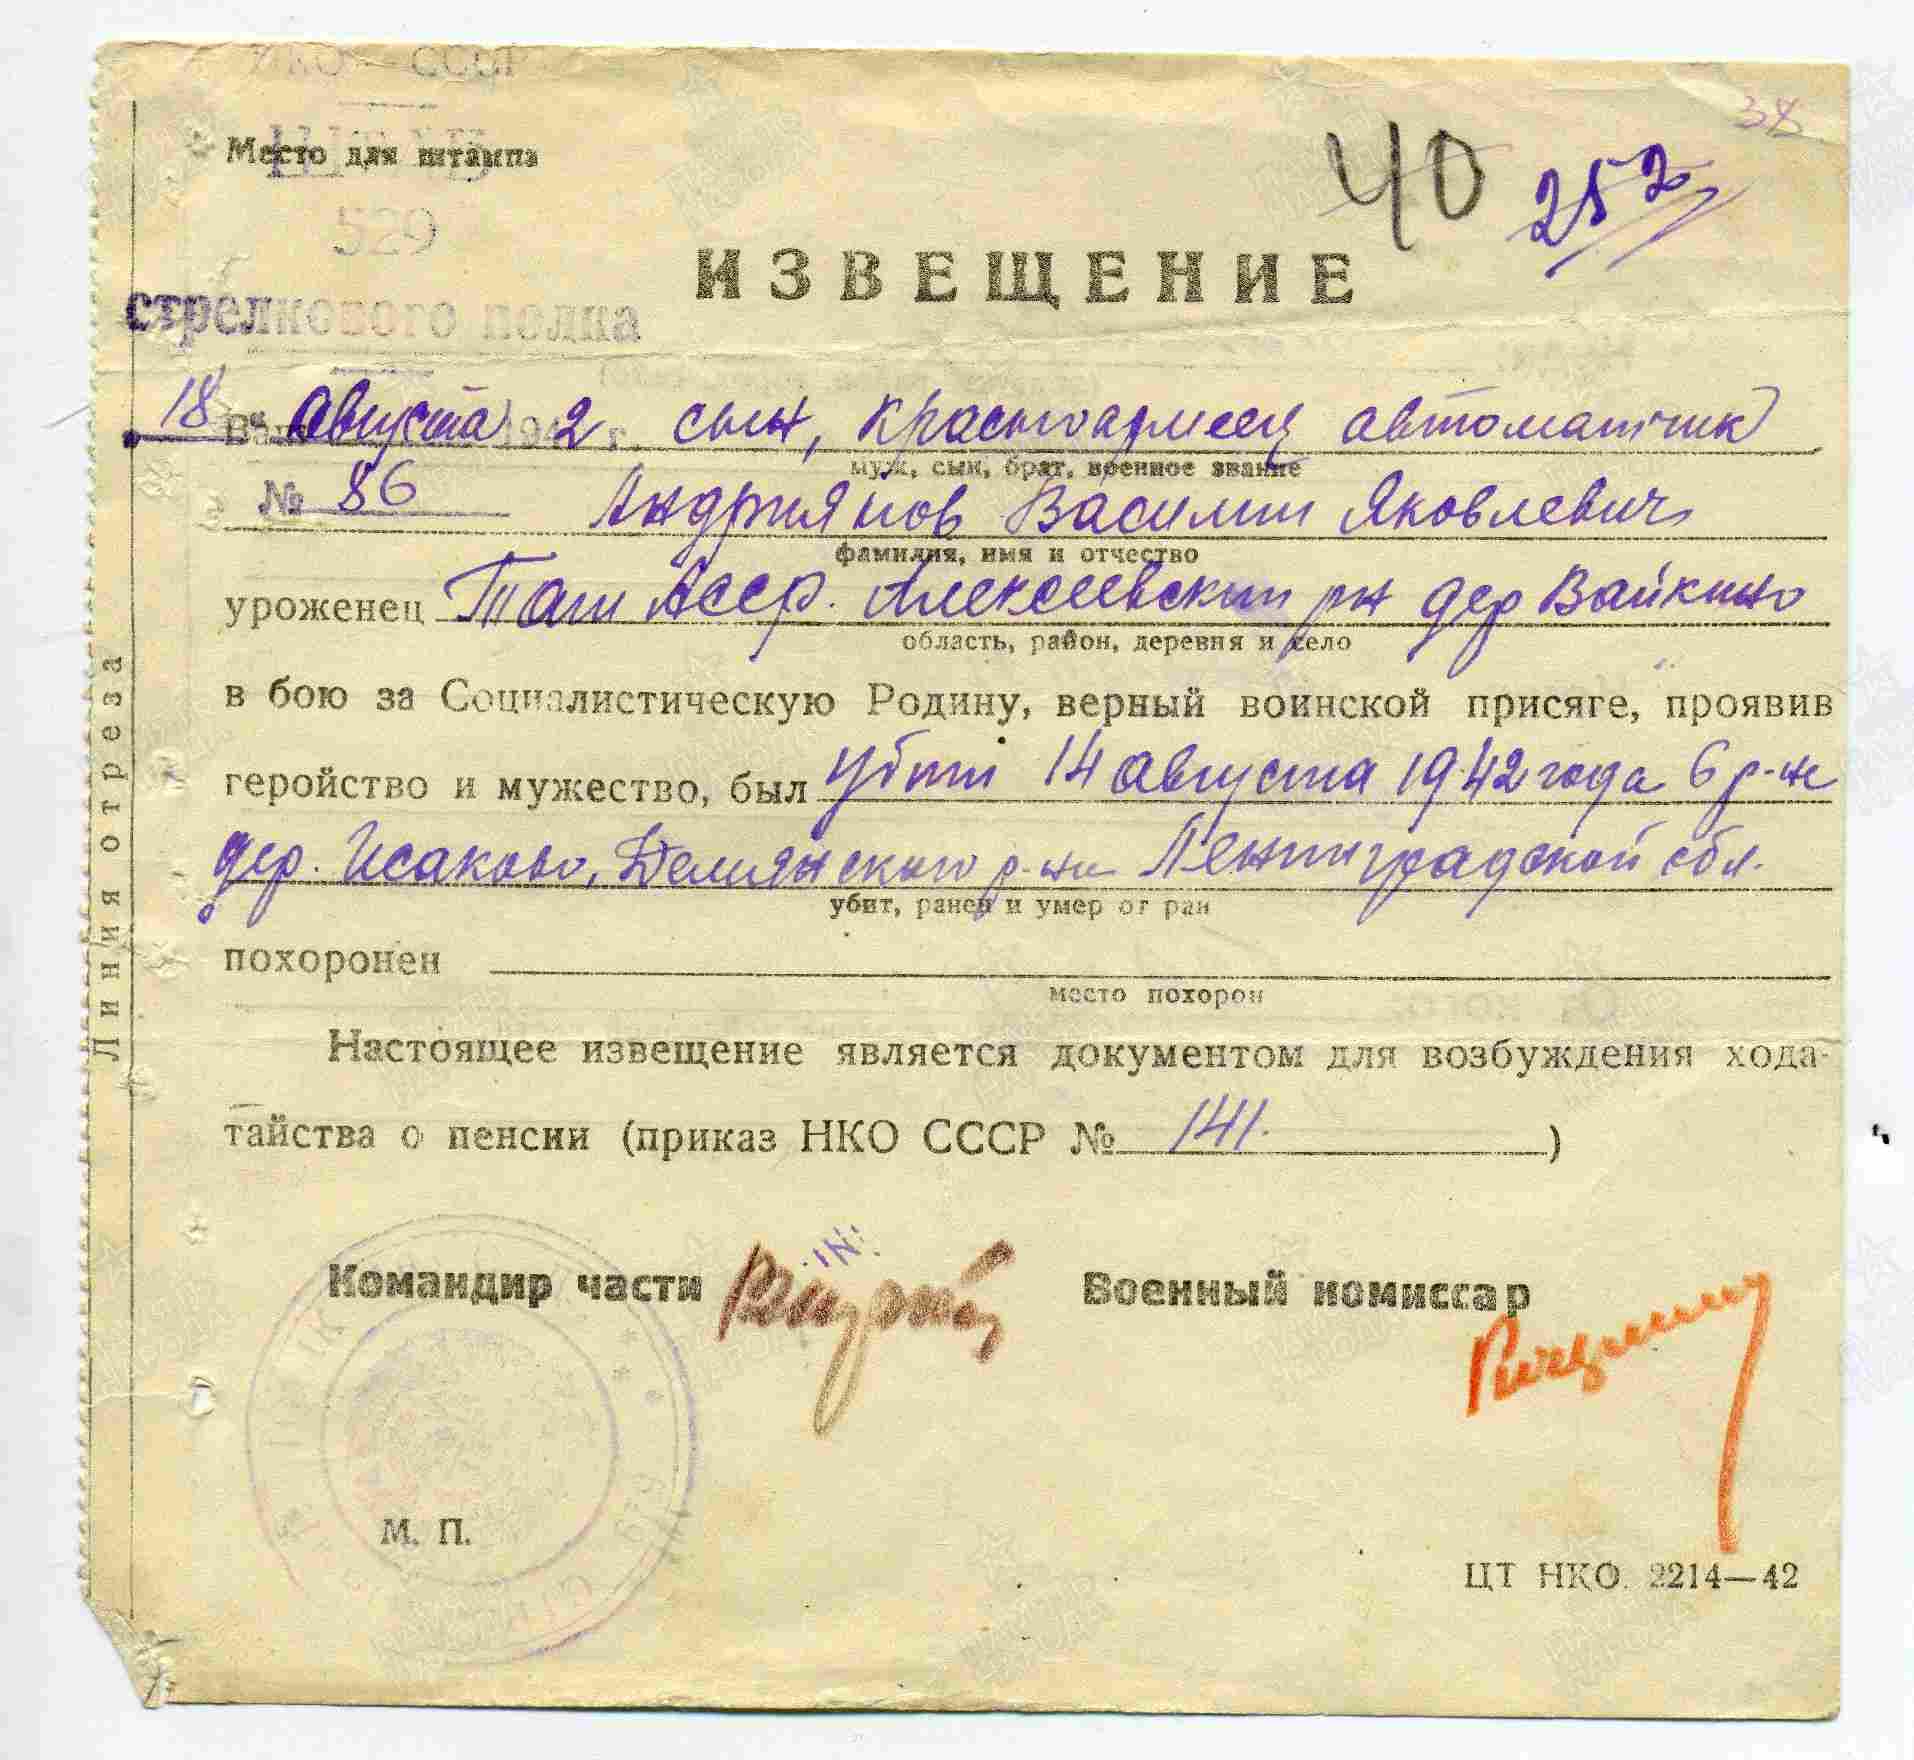 НКО — СССР
Место для штампа
ШТАБ
40
252
34
529
ИЗВЕЩЕНИЕ
стрелкового полка
18 Августа 1942 г.
Ваш сын, красноармеец автоматчик
муж, сын, брат, военное звание
№ 86
Андриянов Василии Яковлевич
фамилия, имя и отчество
уроженец Тат Асср. Алексеевскии рн дер Вайкино
область, район, деревня и село
в бою за Социалистическую Родину, верный воинской присяге, проявив
геройство и мужество, был убит 14 августа 1942 года в р-не
дер. Исаково, Демянского р-на Ленинградской обл.
убит, ранен и умер от ран
похоронен
место похорон
Настоящее извещение является документом для возбуждения хода-
тайства о пенсии (приказ НКО СССР № 141.)
Командир части
Военный комиссар
М. П.
ЦТ НКО. 2214—42
Линия отреза